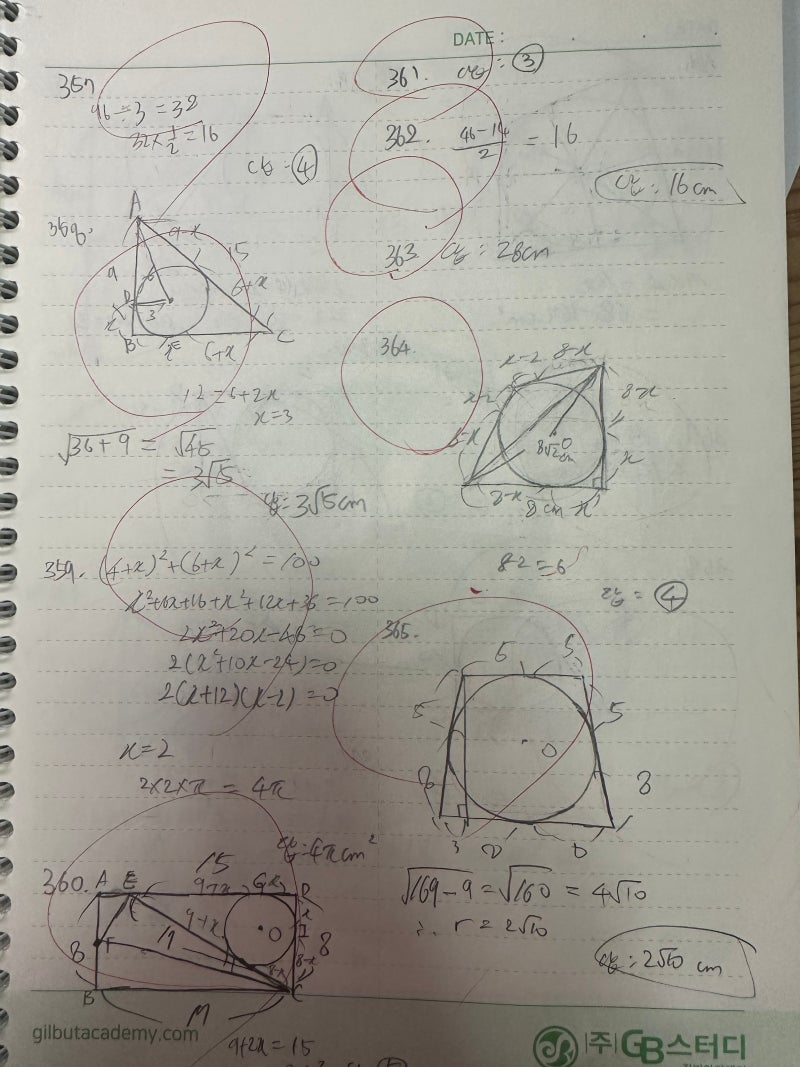 DATE :
357.
96÷3=32
32×1/2=16
답: ④
358.
A
9-x
9
6
15
6+x
D
3
x
B
x
E
6+x
C
12=6+2x
x=3
√36+9 = √45
= 3√5
답: 3√5cm
359. (4+x)²+(6+x)²=100
2x²+20x-48=0
2(x²+10x-24)=0
2(x+12)(x-2)=0
x=2
2×2×π = 4π
답: 4πcm²
360.
15
A E 9+x G x D
9+x
x
O
8
8-x
8-x
B
C
9+2x=15
361. 답: ③
362. 46-14/2 = 16
답: 16cm
363. 답: 28cm
364.
x-2 8-x
x-2
8-x
8-x
x
8√2cm
O
8-x 8cm x
8-2=6
답= ④
365.
5 5
5 5
O
8 8
3
√169-9 = √160 = 4√10
∴ r = 2√10
답: 2√10 cm
gilbutacademy.com
(주)GB스터디